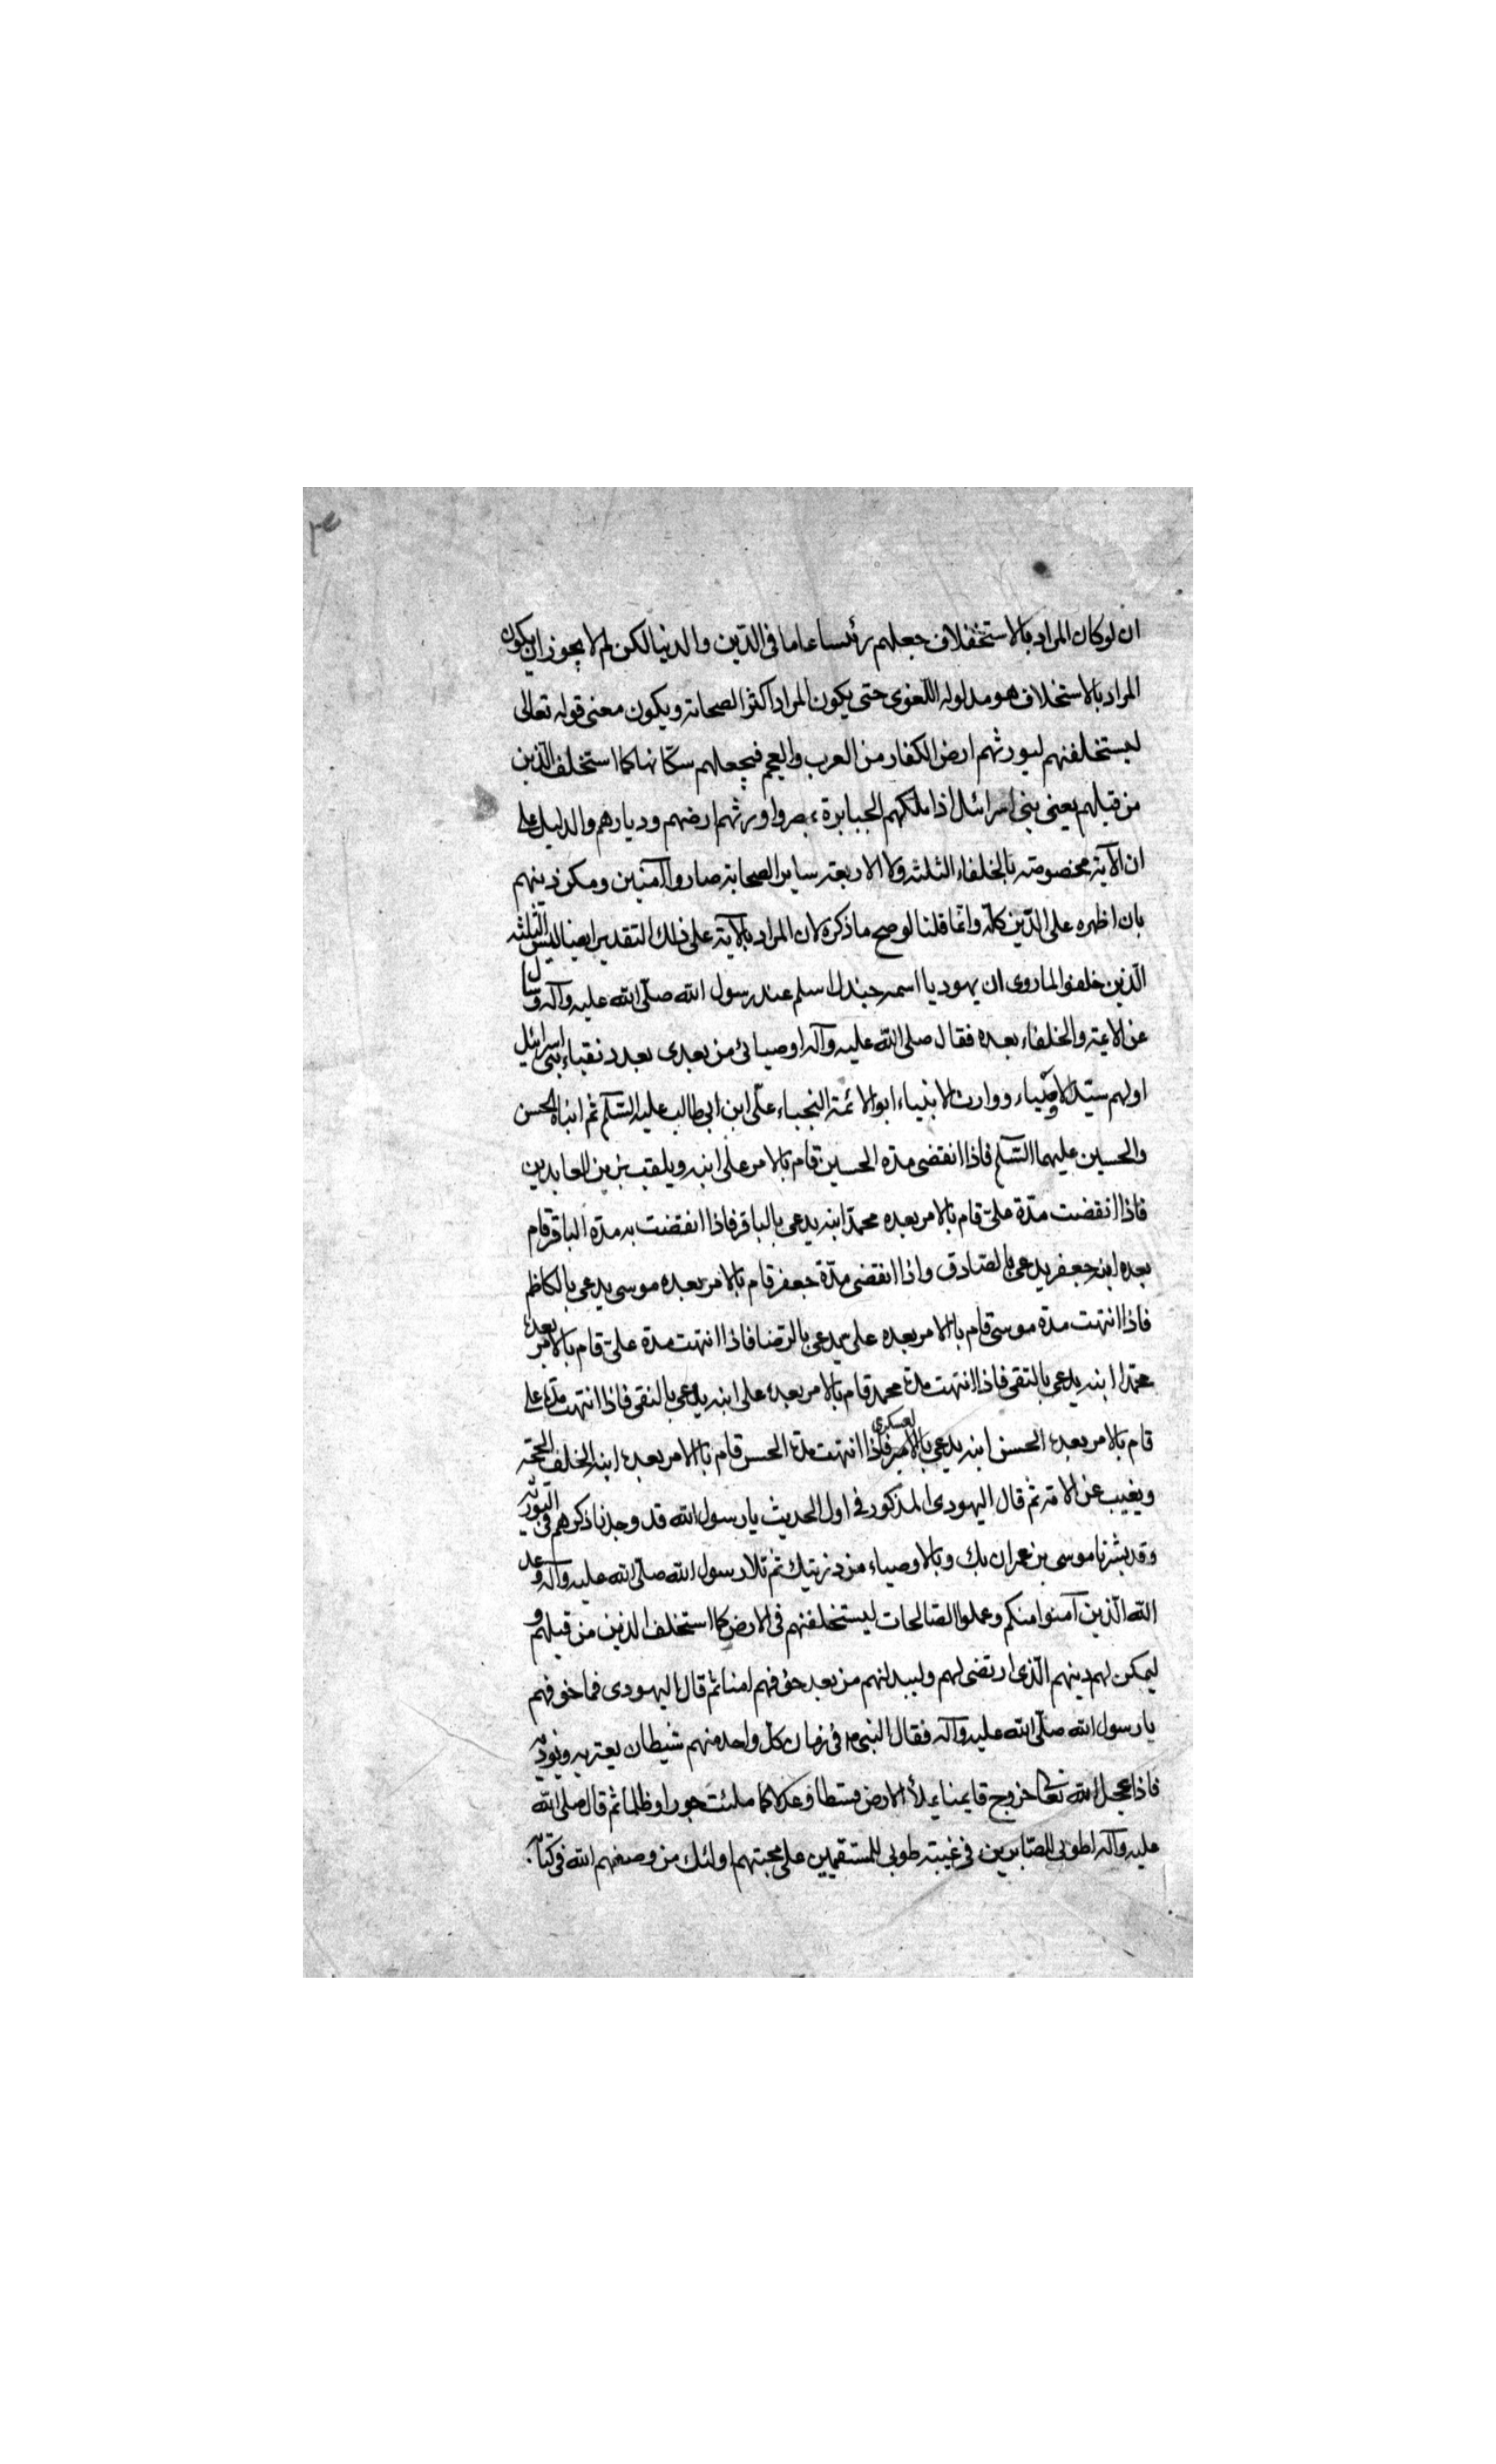 ان لو كان المراد بالاستخفلاف جعلهم رئيسا عاما فى الدّين والدنيا لكن لم لا يجوز ان يكون
المراد بالاستخلاف هو مدلوله اللّغوى حتى يكون المراد اكثر الصحابة ويكون معنى قوله تعالى
ليستخلفنهم ليورثهم ارض الكفار من العرب والعجم فيجعلهم سكّانها كما استخلف الّذين
من قبلهم يعنى بنى اسرائيل اذا ملكهم الجبابرة بمصر واورثهم ارضهم وديارهم والدليل على
ان الآية مخصوصة بالخلفاء الثلثه ولا الاربعة ساير الصحابة صاروا آمنين ومكن دينهم
بان اظهره على الدّين كلّه وانّما قلنا لو صح ما ذكره لان المراد بالآية على ذلك التقدير ايضا ليس الثلثه
الّذين خلفوا لما روى ان يهوديا اسمه جندل اسلم عند رسول الله صلّى الله عليه وآله وسال
عن الائمة والخلفاء بعده فقال صلى الله عليه وآله اوصيائى من بعدى بعدد نقباء بنى اسرائيل
اولهم سيّد الاوصياء ووارث الانبياء ابو الائمة النجباء علّى ابن ابى طالب عليه السّلم ثم ابناه الحسن
والحسين عليهما السّلم فاذا انقضى مدّه الحسين قام بالامر علّى ابنه ويلقب بزين العابدين
فاذا انقضت مدّة علىّ قام بالامر بعده محمدّ ابنه يدعى بالباقر فاذا انقضت به مدّة الباقر قام
بعده ابنه جعفر يدعى بالصّادق واذا انقضى مدّة جعفر قام بالامر بعده موسى يدعى بالكاظم
فاذا انتهت مدّة موسى قام بالامر بعده على يدعى بالرّضا فاذا انتهت مدّة علىّ قام بالامر بعده
محمّدا ابنه يدعى بالتقى فاذا انتهت مدة محمد قام بالامر بعده على ابنه يدعى بالنقى فاذا انتهت مدّة على
قام بالامر بعده الحسن ابنه يدعى بالامير العسكرى فاذا انتهت مدة الحسن قام بالامر بعده ابنه الخلف الحجّة
ويغيب عن الامّة ثم قال اليهودى المذكور فى اول الحديث يا رسول الله قد وجدنا ذكرهم فى التورية
وقد بشّرنا موسى بن عمران بك وبالاوصياء من ذريتك ثم تلا رسول الله صلّى الله عليه وآله وعد
الله الّذين آمنوا منكم وعملوا الصّالحات ليستخلفنهم فى الارض كما استخلف الذين من قبلهم و
ليمكن لهم دينهم الّذى ارتضى لهم وليبدلنهم من بعد خوفهم امنا ثم قال اليهودى فما خوفهم
يا رسول الله صلّى الله عليه وآله فقال النبى م فى زمان كلّ واحد منهم شيطان يعتريه ويؤذيه
فاذا عجل الله تعا خروج قايمنا يملأ الارض قسطا وعدلا كما ملئت جورا وظلما ثم قال صلى الله
عليه وآله طوبى للصّابرين فى غيبته طوبى للمستقيمين على محبتهم اولئك من وصفهم الله فى كتابه